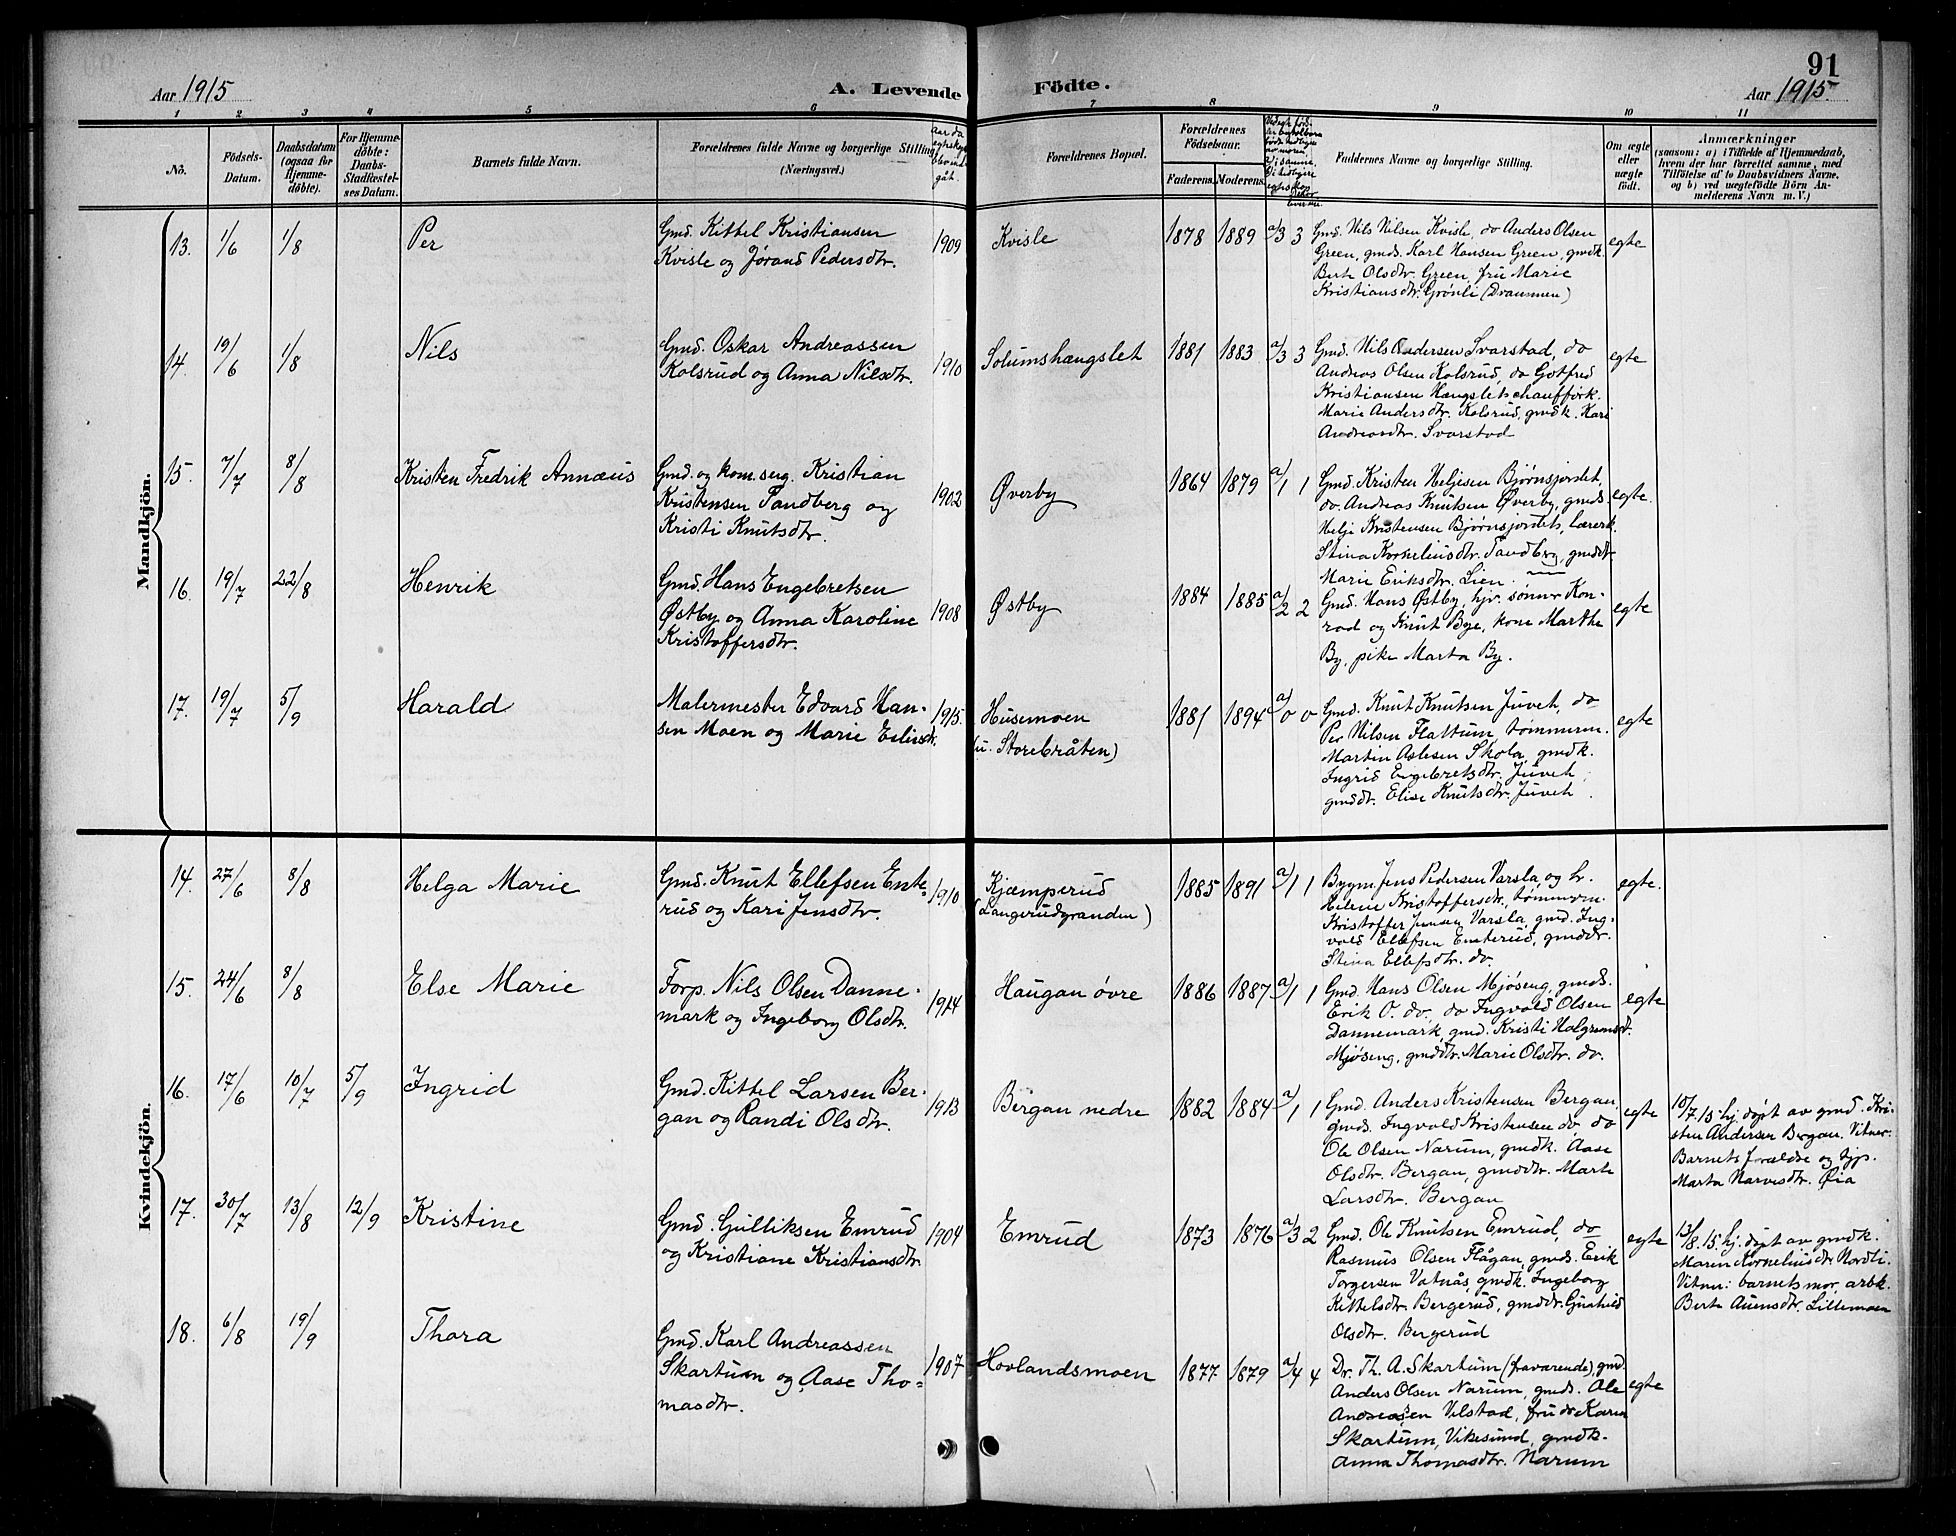 91
Aar 1915
A. Levende
Födte.
Aar 1915
1 2 3 4 5 6 7 8 9 10 11
No.
Födsels-
Datum.
Daabsdatum
(ogsaa for
Hjemme-
döbte).
For Hjemme-
döbte:
Daabs-
Stadfæstel-
ses Datum.
Barnets fulde Navn.
Forældrenes fulde Navne og borgerlige Stilling
(Næringsvei.)
Aar da
Forældrenes Bopæl.
Forældrenes
Födselsaar.
Faderens.
Moderens.
Faddernes Navne og borgerlige Stilling.
Om ægte
eller
uægte
födt.
Anmærkninger
(saasom: a) i Tilfælde af Hjemmedaab,
hvem der har forrettet samme, med
Tilföielse af to Daabsvidners Navne.
og b) ved uegtefödte Börn An-
melderens Navn m. V.)
Mandkjön.
13. 1/6 1/8 Per
Gmd. Kittel Kristiansen
Kvisle og Jørand Pedersdtr.
1909 Kvisle 1878 1889 a/3 3
Gmd. Nils Nilsen Kvisle, do Anders Olsen
Green, gmds. Karl Hansen Green, gmdk.
Berte Olsdtr. Green, frü Marie
Kristiansdtr. Grönli (Drammen)
egte
14. 19/6 1/8 Nils
Gmd. Oskar Andreassen
Kolsrud og Anna Nilsdtr.
1910 Solumshængslet 1881 1883 a/3 3
Gmd. Nils Andersen Svarstad, do
Andreas Olsen Kolsrud, do Gotfred
Kristiansen Hængslet,
Marie Andersdtr. Kolsrud, gmdk. Kari
Andreasdtr. Svarstad
egte
15. 7/7 8/8 Kristen Fredrik Annæus
Gmd. og kom.serg. Kristian
Kristensen Sandberg og
Kristi Knutsdtr.
1902 Øverby 1864 1879 a/1 1
Gmd. Kristen Heljesen Bjørnsjordet,
do. Andreas Knutsen Øverby, gmds.
Helje Kristensen Bjørnsjordet, lærerk.
Stina Kornheliusdtr. Sandberg, gmddtr.
Marie Eriksdtr. Lien.
egte.
16. 19/7 22/8 Henrik
Gmd. Hans Engebretsen
Østby og Anna Karoline
Kristoffersdtr.
1908 Østby 1884 1885 a/2 2
Gmd. Hans Østby, hjv. sønner Kon-
rad og Knut Bye, kone Marthe
By, pike Marta By.
egte
17. 19/7 5/9 Harald
Malermester Edvard Han-
sen Moen og Marie
1915 Husemoen
(u. Storebråten)
1881 1894 a/0 0
Gmd. Knut Knutsen Juveh, do
Per Nilsen Flattum, tømmerm.
Martin Aslesen Skola, gmdk.
Ingrid Engebretsdtr. Juveh,
gmddtr. Elise Knutsdtr. Juveh.
egte
Kvindekjön.
14. 27/6 8/8 Helga Marie
Gmd. Knut Ellefsen Ente-
rud og Kari Jensdtr.
1910 Kjæmperud
(Langerudgranden)
1885 1891 a/1 1
Bygm. Jens Pedersen Varsla og h.
Helene Kristoffersdtr., tømmerm.
Kristoffer Jensen Varsla, gmd. Ing-
vald Ellefsen Enterud, gmddtr.
Stina Ellefsdtr. do.
egte.
15. 24/6 8/8 Else Marie
Forp. Nils Olsen Danne-
mark og Ingeborg Olsdtr.
1914 Haugan øvre 1886 1887 a/1 1
Gmd. Hans Olsen Mjøseng, gmds.
Erik O. do., do Ingvald Olsen
Dannemark, gmd. Kristi Halgrimsdtr.
Mjøseng, gmddtr. Marie Olsdtr. do.
egte
16. 17/6 10/7 5/9 Ingrid
Gmd. Kittel Larsen Ber-
gan og Randi Olsdtr.
1913 Bergan nedre 1882 1884 a/1 1
Gmd. Anders Kristensen Bergan,
gmds. Ingvald Kristensen do do
Ole Olsen Narum, gmdk. Aase
Olsdtr. Bergan, gmddtr. Marte
Larsdtr. Bergan
egte
10/7.15 hj. døpt av gmd. Kri-
sten Andersen Bergan. Vitner:
Barnets forældre og
Marta Narvesdtr. Øia
17. 30/7 13/8 12/9 Kristine
Gmd. Gulliksen Emrud
og Kristiane Kristiansdtr.
1904 Emrud 1873 1876 a/3 2
Gmd. Ole Knutsen Emrud, do
Rasmus Olsen Flågan, gmds. Erik
Torgersen Vatnås, gmdk. Ingeborg
Kittelsdtr. Bergerud, gmddtr. Gunhild
Olsdtr. Bergerud
egte
13/8.15. hj. døpt av gmdk.
Maren Korneliusdtr. Nordli.
Vitner: barnets mor, arbk.
Berte Auensdtr. Lillemoen
18. 6/8 19/9 Thora
Gmd. Karl Andreassen
Skartum og Aase Tho-
masdtr.
1907 Hovlandsmoen 1877 1879 a/4 4
Dr. Th. A. Skartum (fraværende), gmd.
Anders Olsen Narum, gmds. Ole
Andreasen Vilstad, frü dr Karen
Skartum, Vikesund, gmdk.
Anna Thomasdtr. Narum
egte